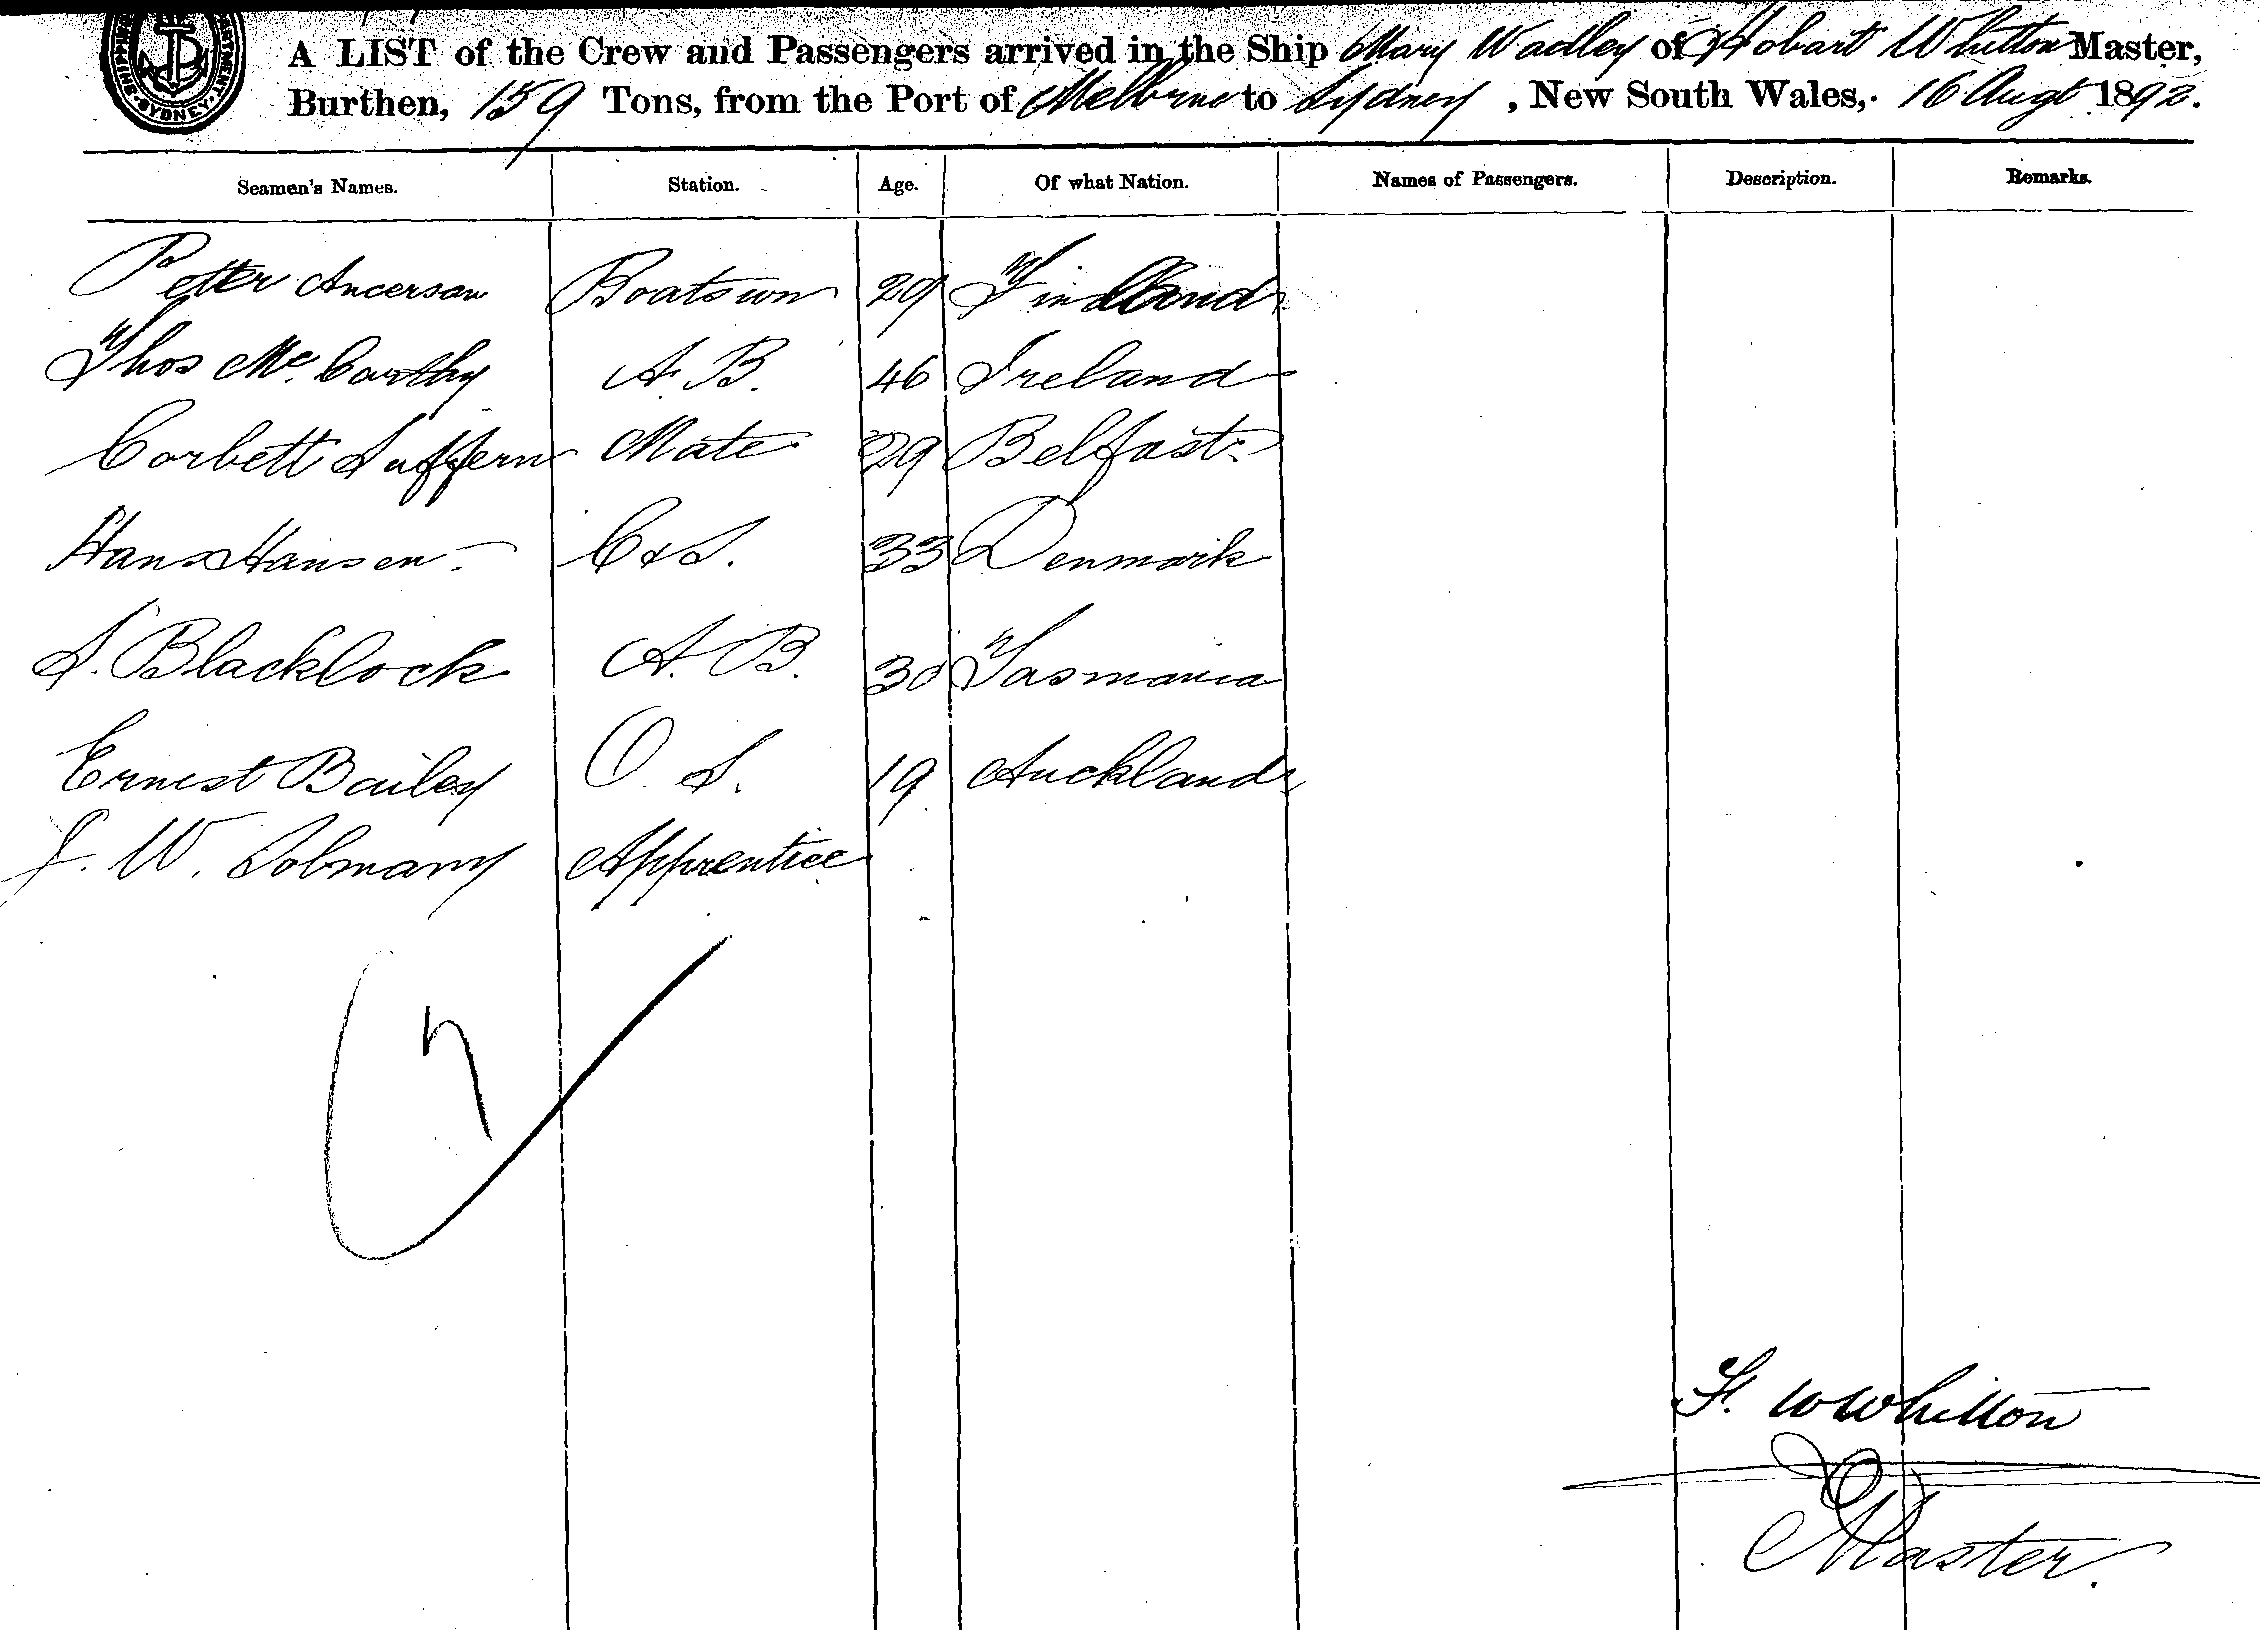 A LIST of the Crew and Passengers arrived in the Ship Mary Wadley of Hobart Whitton Master,
Burthen, 159 Tons, from the Port of Melbrne to Sydney, New South Wales, 16 Augt 1892.
Seamen's Names. Station. Age. Of what Nation. Names of Passengers. Description. Remarks.
Petter Ancerson Boatswn 29 Finland
Thos Mc Carthy A.B. 46 Ireland
Corbett Suffern Mate 29 Belfast
Hans Hansen C & S. 33 Denmark
S. Blacklock A.B. 30 Tasmania
Ernest Bailey O.S. 19 Auckland
J. W. Solmany Apprentice
7
F. W Whitton
Master.